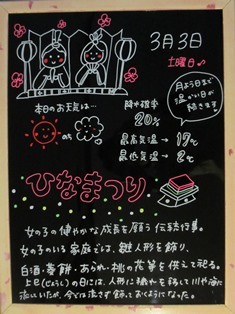 3月3日
土曜日♪
月よう日まで
温かい日が
続きます
本日のお天気は…
降水確率
20%
最高気温→17℃
最低気温→2℃
ひなまつり
女の子の健やかな成長を願う伝統行事。
女の子のいる家庭では、雛人形を飾り、
白酒・菱餅・あられ・桃の花等を供えて祀る。
上巳(じょうし)の日には、人形に穢れを移して川や海に
流していたが、今では流さず飾っておくようになった。